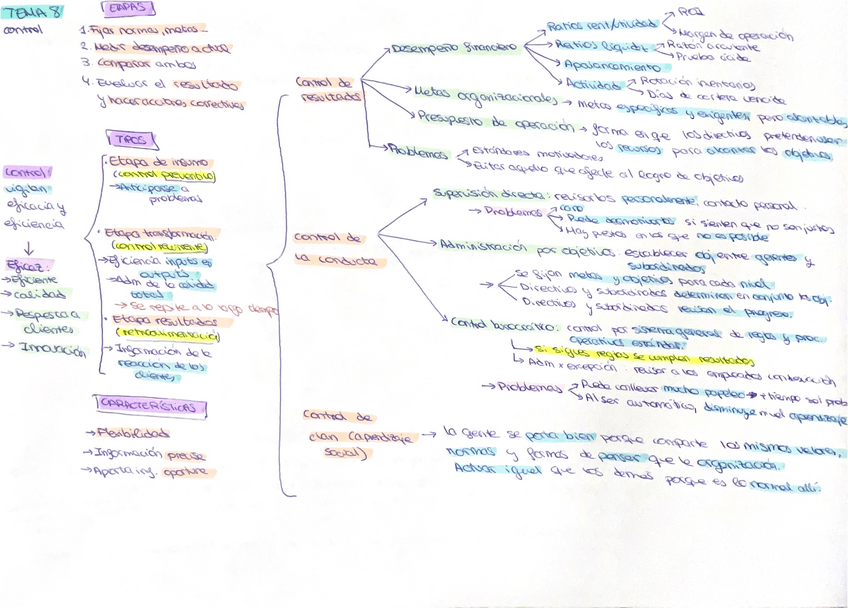 TEMA 8
control
ETAPAS
1. Fijar normas, metas...
2. Medir desempeño actual
3 comparar ambos
4. Evaluar el resultado
y hacer acciones correctivas
TIPOS
· Etapa de insumo
(control preventivo)
→ Anticiparse a
problemas
· Etapa transformación
(control recurrente)
→ Eficiencia inputs en
outputs
→ Adm de la calidad
total
→ Se repite a lo largo tiempo
· Etapa resultados
(retroalimentación)
→ Información de la
reacción de los
clientes
control:
vigilan
eficacia y
eficiencia
Eficaz:
→ Eficiente
→ calidad
→ Respuesta a
clientes
→ Innovación
CARACTERÍSTICAS
→ Flexibilidad
→ Información precisa
→ Aporta inf. oportuna
Control de
resultados
→ Desempeño financiero
Ratios rentabilidad
→ ROI
→ Margen de operación
→ Ratios liquidez
→ Razón corriente
→ Prueba ácida
→ Apalancamiento
→ Actividad
→ Rotación inventarios
→ Días de cartera vencida
→ Metas organizacionales → metas específicas y exigentes pero alcanzables
→ Presupuesto de operación → forma en que los directivos pretenden usar
los recursos para alcanzar los objetivos
→ Problemas
Estándares motivadores
Evitar aquello que afecte al logro de objetivos
Control de
la conducta
Supervisión directa: revisarlos personalmente, contacto personal.
→ Problemas
caro
Puede desmotivarlos si sienten que no son justos
Hay puestos en los que no es posible
Administración por objetivos establecer obj entre gerentes y
subordinados
Se fijan metas y objetivos para cada nivel
Directivos y subordinados determinan en conjunto los obj.
Directivos y subordinados revisan el progreso.
Control burocrático: control por sistema general de reglas y proc.
operativos estándar.
→ Si sigues reglas se cumplen resultados
→ Adm x excepción: revisar a los empleados
→ Problemas
Puede conllevar mucho papeleo → + tiempo sol prob
Al ser automático, disminuye nivel aprendizaje
Control de
clan (aprendizaje
social)
→ la gente se porta bien porque comparte los mismos valores,
normas y formas de pensar que la organización.
Actuar igual que los demás porque es lo normal allí.